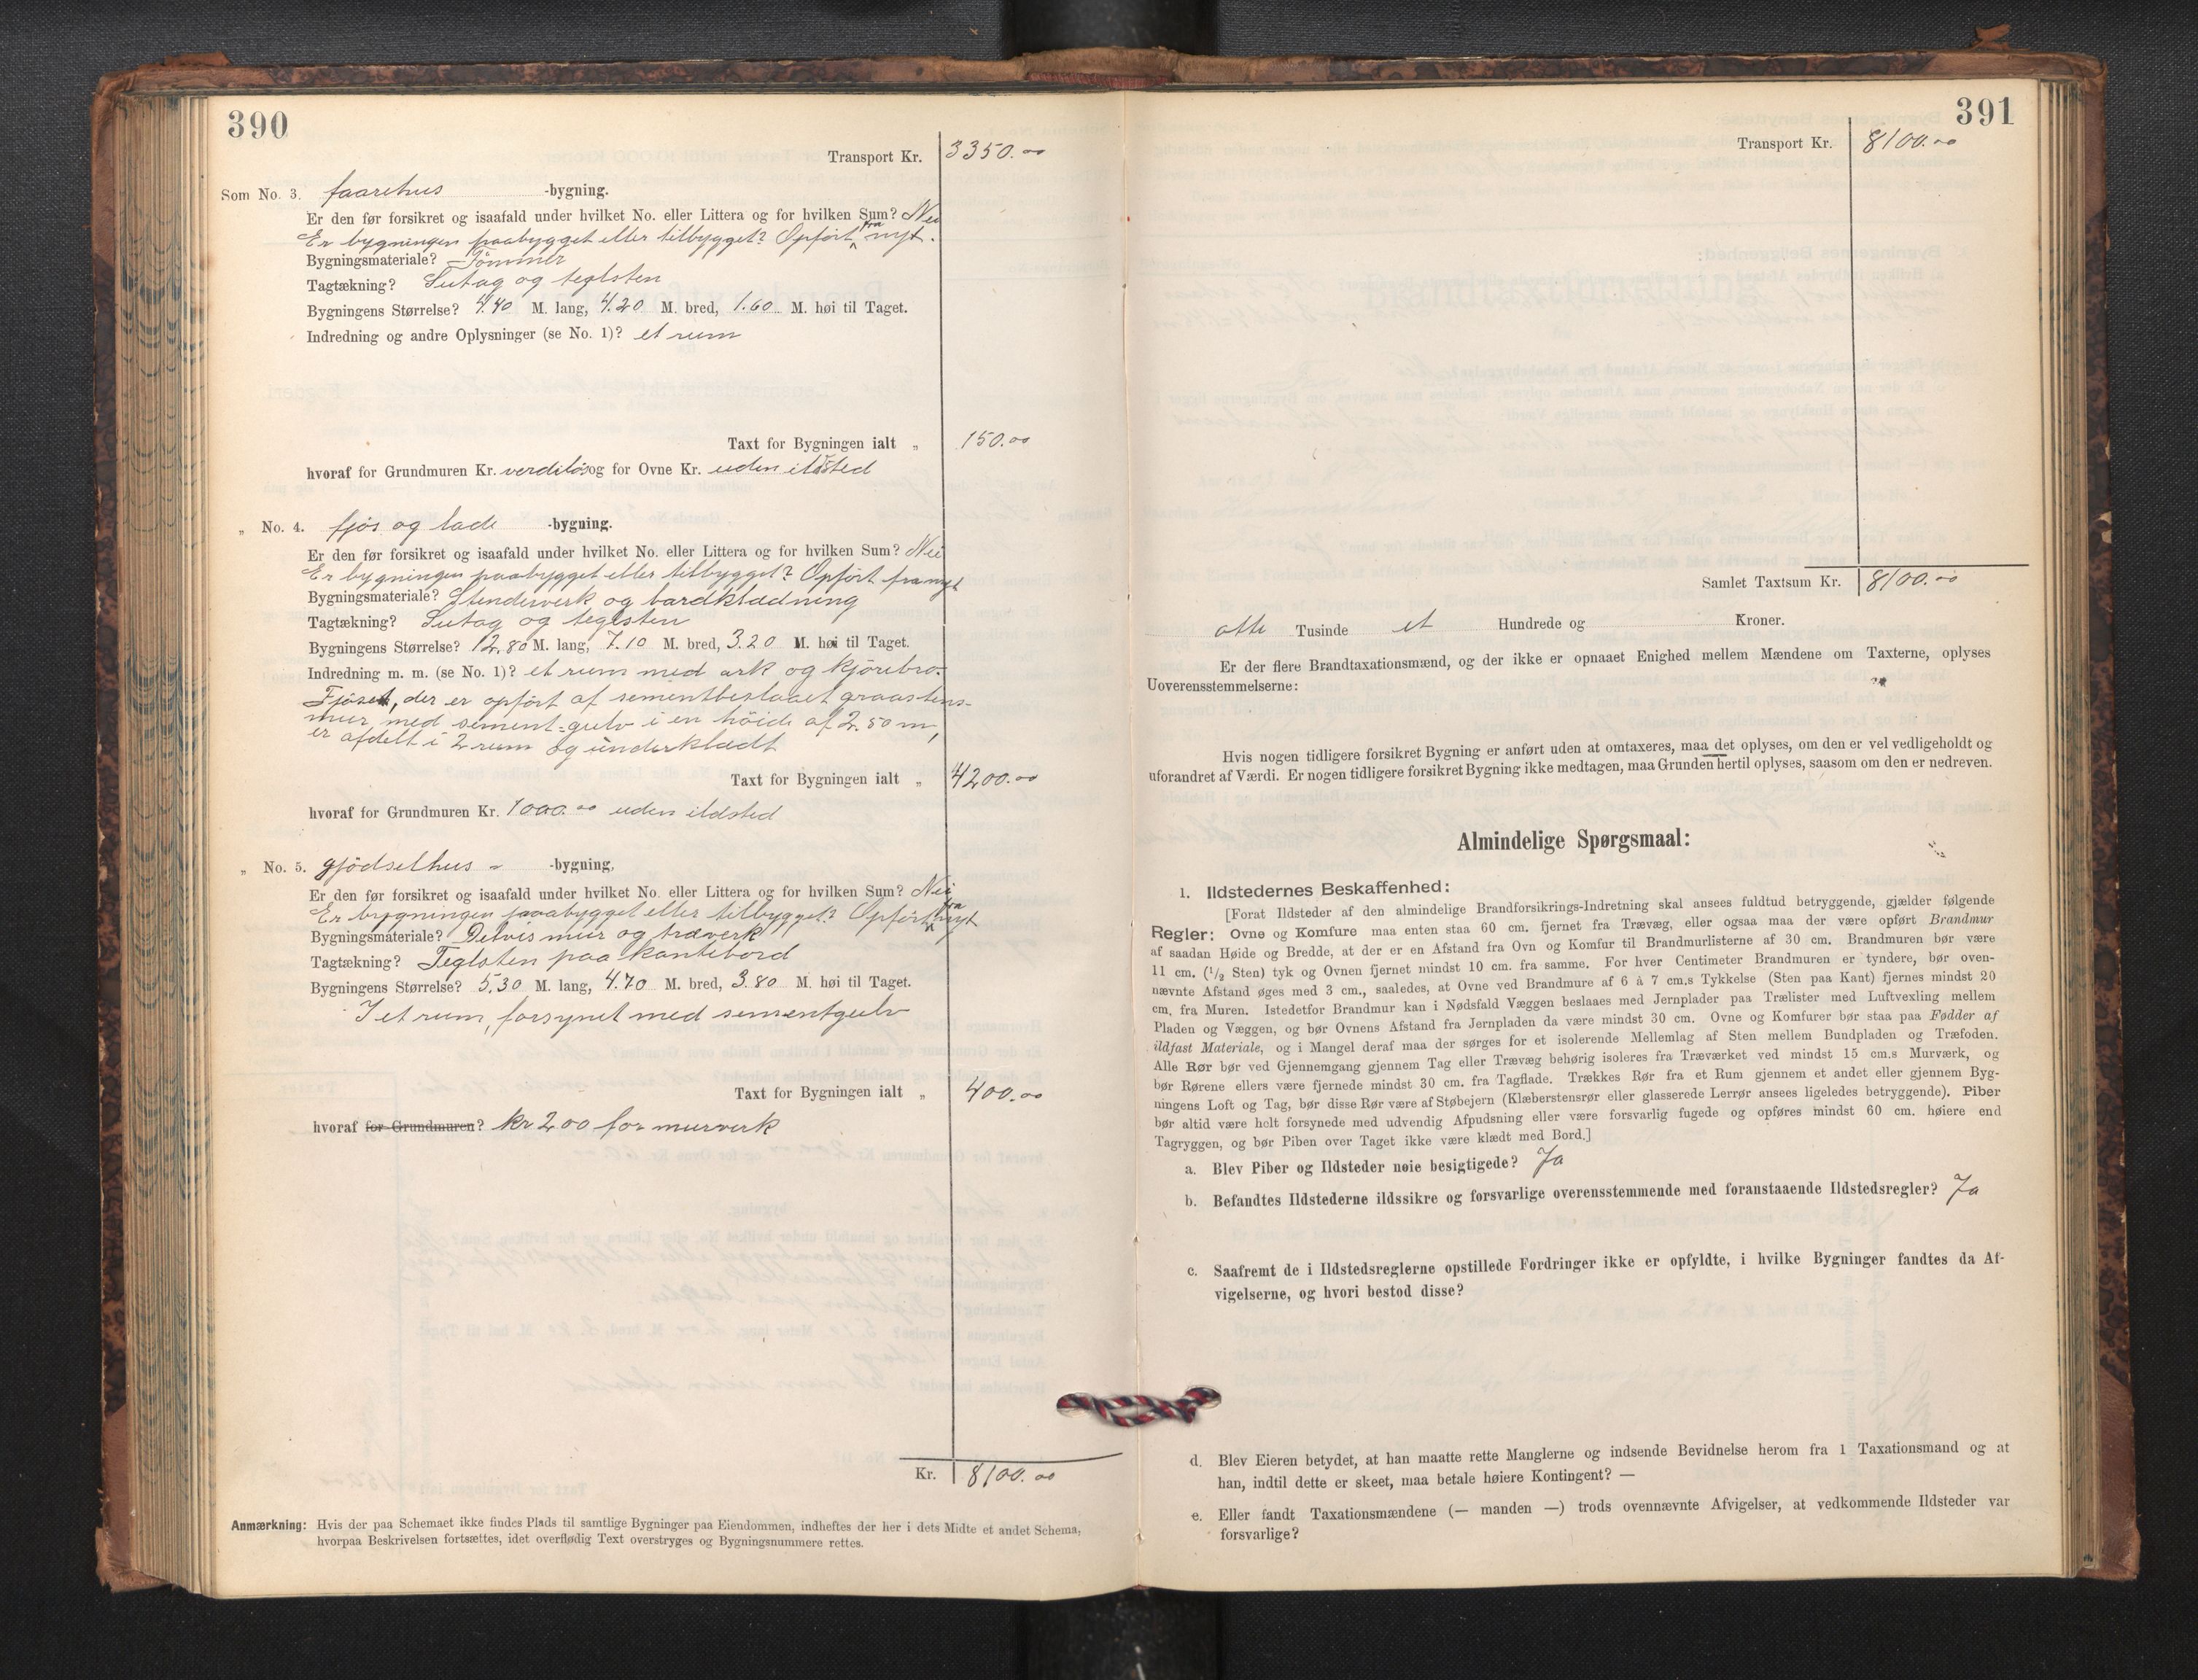 390
Transport Kr. 3350.00
Som No. 3. faarehus -bygning.
Er den før forsikret og isaafald under hvilket No. eller Littera og for hvilken Sum? Nei
Er bygningen paabygget eller tilbygget? Opført fra nyt.
Bygningsmateriale? Tømmer
Tagtækning? Sutag og teglsten
Bygningens Størrelse? 4.40 M. lang, 4.20 M. bred, 1.60 M. høi til Taget.
Indredning og andre Oplysninger (se No. 1)? et rum
Taxt for Bygningen ialt „ 150.00
hvoraf for Grundmuren Kr. verdiløs og for Ovne Kr. uden ildsted
„ No. 4. fjøs og lade -bygning.
Er den før forsikret og isaafald under hvilket No. eller Littera og for hvilken Sum? Nei
Er bygningen paabygget eller tilbygget? Opført fra nyt
Bygningsmateriale? Stenderverk og bordklædning
Tagtækning? Sutag og teglsten
Bygningens Størrelse? 12.80 M. lang, 7.10 M. bred, 3.20 M. høi til Taget.
Indredning m. m. (se No. 1)? et rum med ark og kjørebro.
Fjøset, der er opført af sementbeslaaet graastens-
mur med sement-gulv i en høide af 2.50 m,
er afdelt i 2 rum og underklædt
Taxt for Bygningen ialt „ 4200.00
hvoraf for Grundmuren Kr. 1000.00 uden ildsted
„ No. 5. gjødselhus - -bygning,
Er den før forsikret og isaafald under hvilket No. eller Littera og for hvilken Sum? Nei
Er bygningen paabygget eller tilbygget? Opført fra nyt
Bygningsmateriale? Delvis mur og træverk
Tagtækning? Teglsten paa kantebord
Bygningens Størrelse? 5.30 M. lang, 4.70 M. bred, 3.80 M. høi til Taget.
I et rum, forsynet med sementgulv
Taxt for Bygningen ialt „ 400.00
hvoraf for Grundmuren? kr 200 for murverk
Kr. 8100.00
Anmærkning: Hvis der paa Schemaet ikke findes Plads til samtlige Bygninger paa Eiendommen, indheftes der her i dets Midte et andet Schema,
hvorpaa Beskrivelsen fortsættes, idet overflødig Text overstryges og Bygningsnummere rettes.
391
Transport Kr. 8100.00
Samlet Taxtsum Kr. 8100.00
otte Tusinde et Hundrede og Kroner.
Er der flere Brandtaxationsmænd, og der ikke er opnaaet Enighed mellem Mændene om Taxterne, oplyses
Uoverensstemmelserne:
Hvis nogen tidligere forsikret Bygning er anført uden at omtaxeres, maa det oplyses, om den er vel vedligeholdt og
uforandret af Værdi. Er nogen tidligere forsikret Bygning ikke medtagen, maa Grunden hertil oplyses, saasom om den er nedreven.
Almindelige Spørgsmaal:
1. Ildstedernes Beskaffenhed:
[Forat Ildsteder af den almindelige Brandforsikrings-Indretning skal ansees fuldtud betryggende, gjælder følgende
Regler: Ovne og Komfure maa enten staa 60 cm. fjernet fra Trævæg, eller ogsaa maa der være opført Brandmur
af saadan Høide og Bredde, at der er en Afstand fra Ovn og Komfur til Brandmurlisterne af 30 cm. Brandmuren bør være
11 cm. (1/2 Sten) tyk og Ovnen fjernet mindst 10 cm. fra samme. For hver Centimeter Brandmuren er tyndere, bør oven-
nævnte Afstand øges med 3 cm., saaledes, at Ovne ved Brandmure af 6 à 7 cm.s Tykkelse (Sten paa Kant) fjernes mindst 20
cm. fra Muren. Istedetfor Brandmur kan i Nødsfald Væggen beslaaes med Jernplader paa Trælister med Luftvexling mellem
Pladen og Væggen, og bør Ovnens Afstand fra Jernpladen da være mindst 30 cm. Ovne og Komfurer bør staa paa Fødder af
ildfast Materiale, og i Mangel deraf maa der sørges for et isolerende Mellemlag af Sten mellem Bundpladen og Træfoden.
Alle Rør bør ved Gjennemgang gjennem Tag eller Trævæg behørig isoleres fra Træværket ved mindst 15 cm.s Murværk, og
bør Rørene ellers være fjernede mindst 30 cm. fra Tagflade. Trækkes Rør fra et Rum gjennem et andet eller gjennem Byg-
ningens Loft og Tag, bør disse Rør være af Støbejern (Klæberstensrør eller glasserede Lerrør ansees ligeledes betryggende). Piber
bør altid være helt forsynede med udvendig Afpudsning eller være forsvarlig fugede og opføres mindst 60 cm. høiere end
Tagryggen, og bør Piben over Taget ikke være klædt med Bord.]
a. Blev Piber og Ildsteder nøie besigtigede? Ja
b. Befandtes Ildstederne ildssikre og forsvarlige overensstemmende med foranstaaende Ildstedsregler? Ja
c. Saafremt de i Ildstedsreglerne opstillede Fordringer ikke er opfyldte, i hvilke Bygninger fandtes da Af-
vigelserne, og hvori bestod disse?
d. Blev Eieren betydet, at han maatte rette Manglerne og indsende Bevidnelse herom fra 1 Taxationsmand og at
han, indtil dette er skeet, maa betale høiere Kontingent? —
e. Eller fandt Taxationsmændene (— manden —) trods ovennævnte Afvigelser, at vedkommende Ildsteder var
forsvarlige?